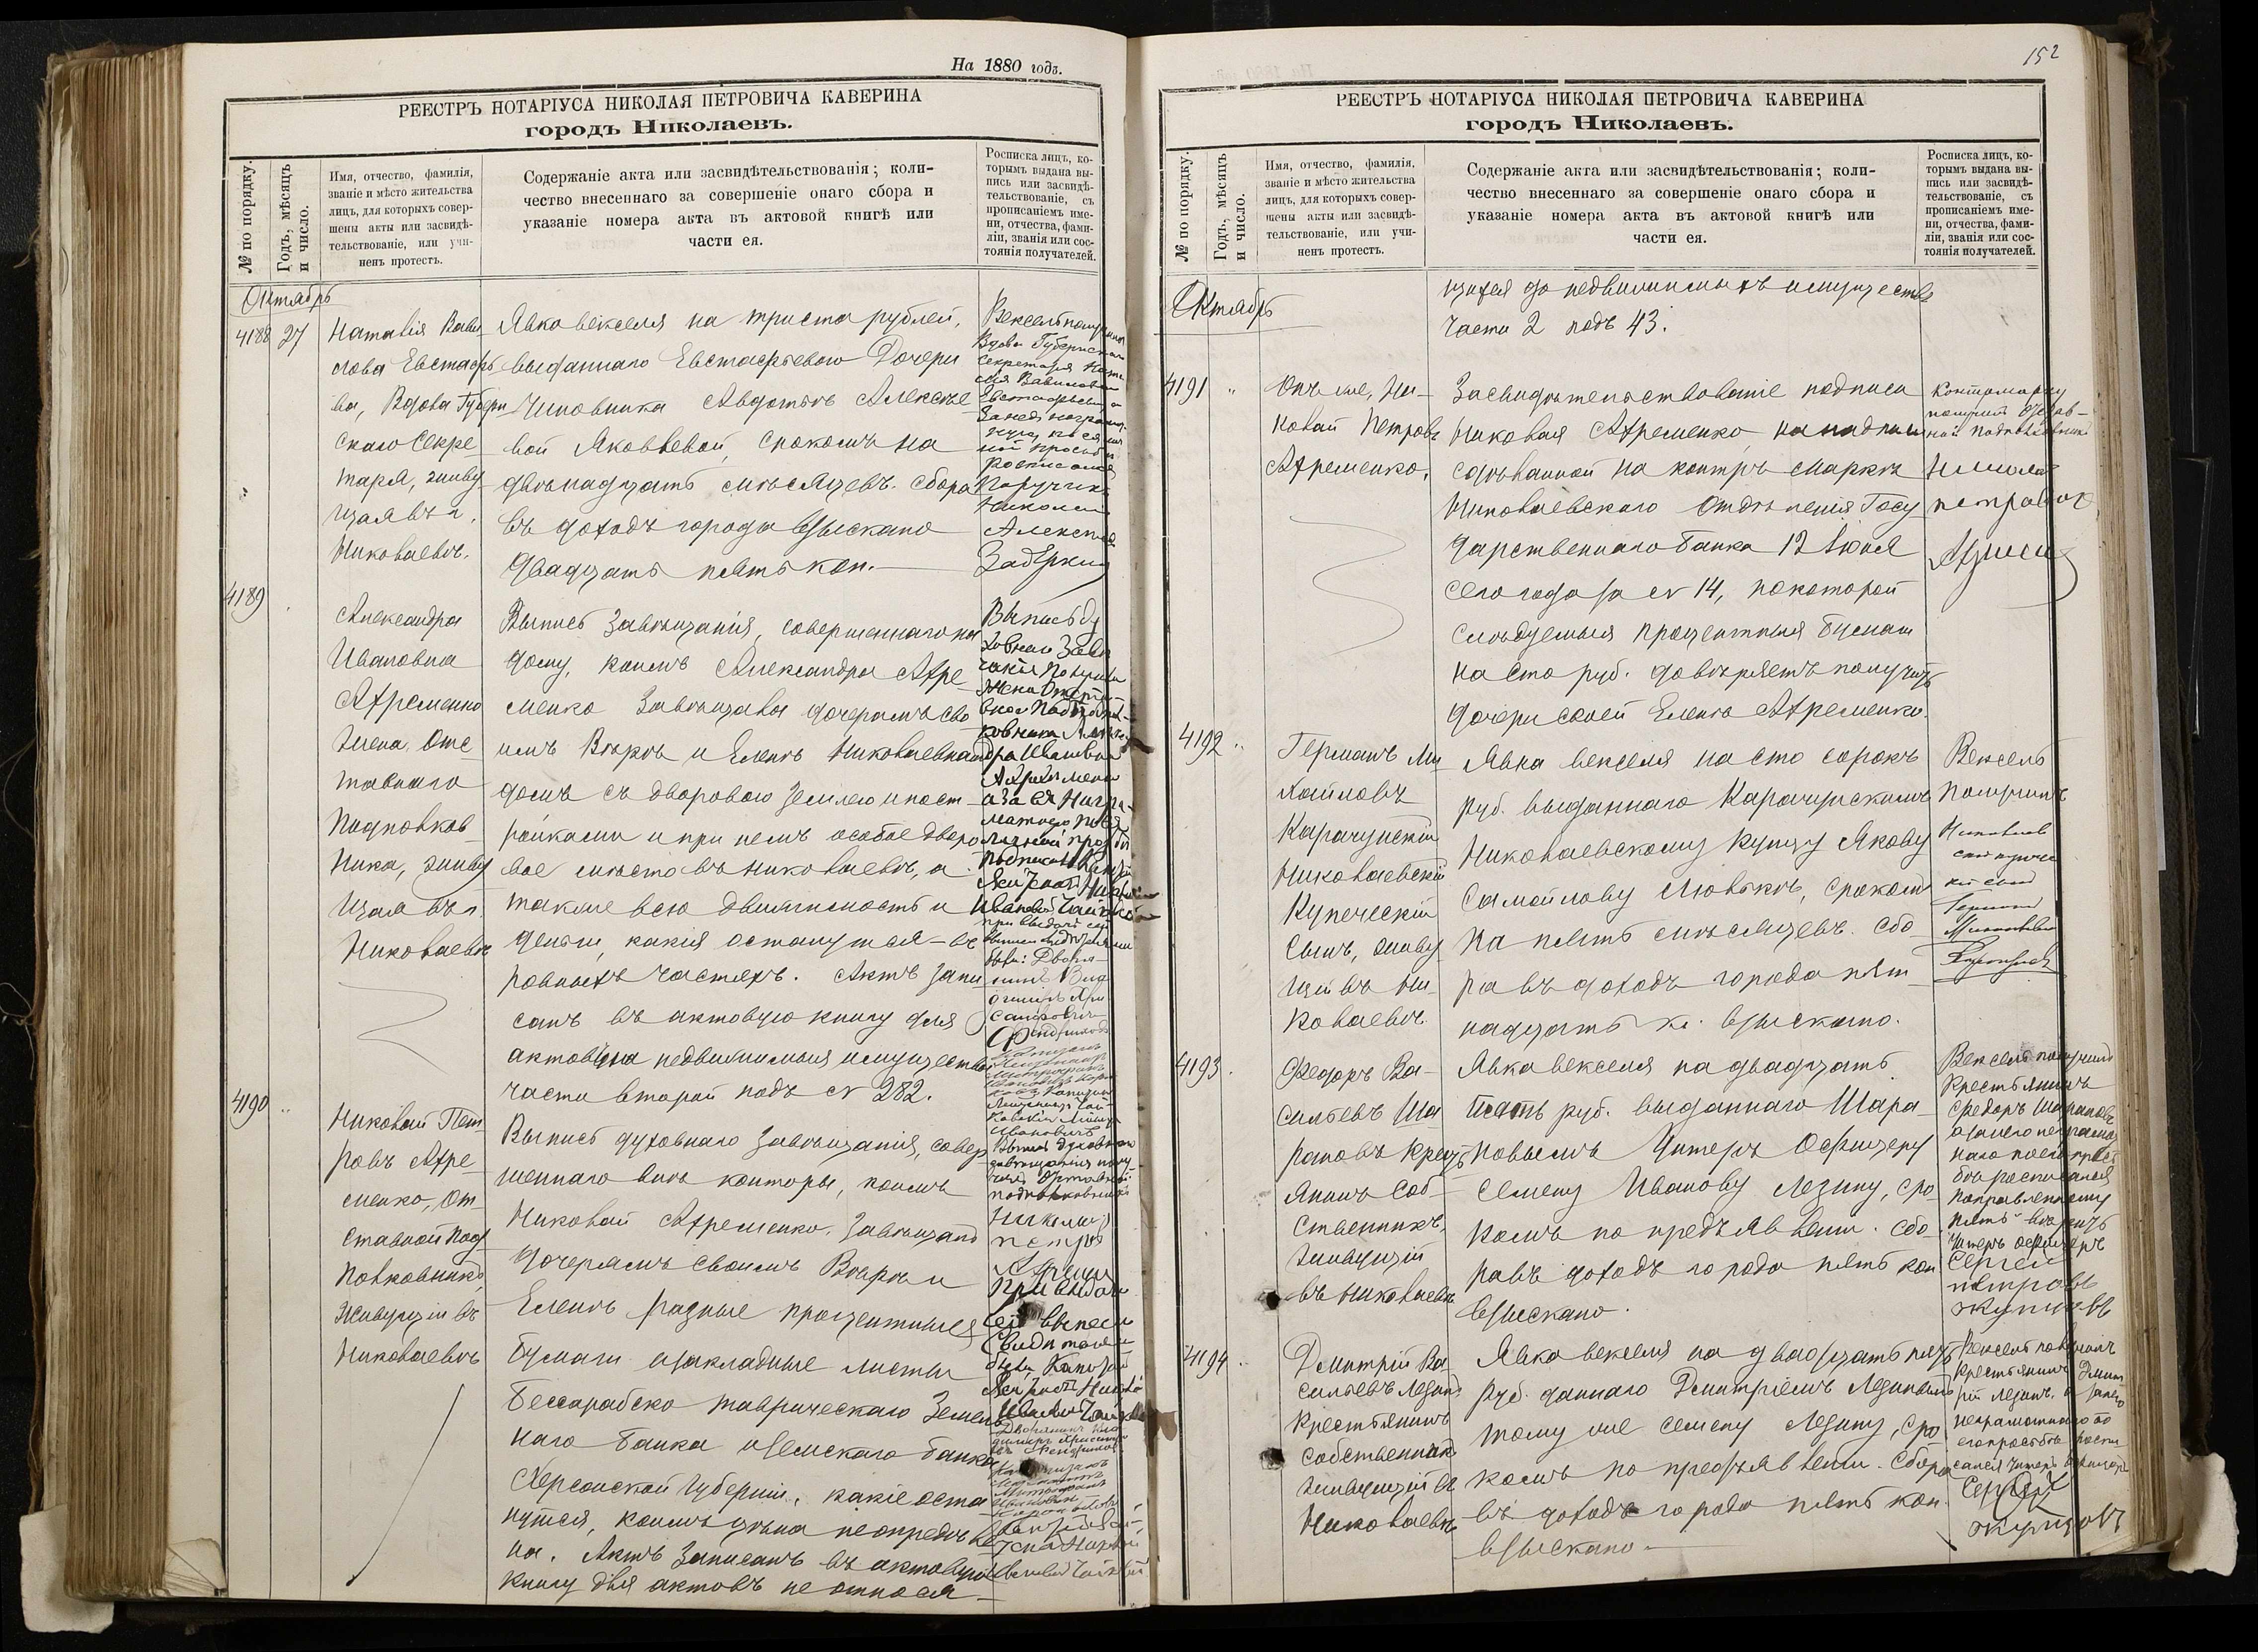 На 1880 годъ.
РЕЕСТРЪ НОТАРІУСА НИКОЛАЯ ПЕТРОВИЧА КАВЕРИНА
городъ Николаевъ.
№ по порядку.
Годъ, мѣсяцъ
и число.
Имя, отчество, фамилія,
званіе и мѣсто жительства
лицъ, для которыхъ совер-
шены акты или засвидѣ-
тельствованіе, или учи-
ненъ протестъ.
Содержаніе акта или засвидѣтельствованія; коли-
чество внесеннаго за совершеніе онаго сбора и
указаніе номера акта въ актовой книгѣ или
части ея.
Росписка лицъ, ко-
торымъ выдана вы-
пись или засвидѣ-
тельствованіе, съ
прописаніемъ име-
ни, отчества, фами-
ліи, званія или сос-
тоянія получателей.
Октябрь
4188 27
Наталія Вави
лова Евстафь
ва, Вдова Губерн
скаго Секре
таря, живу
щая въ г.
Николаевѣ.
Явка векселя на триста рублей,
выданнаго Евстафьевою Дочери
Чиновника Авдотьѣ Алексѣе
вой Яковлевой, срокомъ на
двѣнадцать мѣсяцевъ. Сбора
въ доходъ города взыскано
двадцать пять коп.
Вексель получила
Вдова Губернскаго
Секретаря Ната
лія Вавилова
Евстафьева а
за нея неграмот
ную, по ея лич
ной просьбѣ
росписался
Поручикъ
Николай
Алексѣев
4189
Александра
Ивановна
Ахременко
Жена Отс
тавнаго
Подполков
ника, живу
щая въ г.
Николаевѣ
Выпись Завѣщанія, совершеннаго на
дому, коимъ Александра Ахре
менко Завѣщала дочерямъ сво
имъ Вѣрѣ и Еленѣ Николаевнамъ
домъ съ дворовою землею и пост
ройками и при немъ особое дворо
вое мѣсто въ Николаевѣ, а
также всю движимость и
деньги, какія останутся - въ
ровныхъ частяхъ. Актъ запи
санъ въ актовую книгу для
актовъ на недвижимыя имущества
части второй подъ № 282.
Выпись Ду
ховнаго Завѣ
щанія Получила
Жена Отстав
ного Подполк
овника Алекса
ндра Ивановна
Ахременко
а за ея Негра
мотную по ея
личной прозьбѣ
4190 "
Николай Пет
ровъ Ахре
менко, От
ставной Под
полковникъ,
Живущій въ
Николаевѣ
Выпись духовнаго Завѣщанія, совер
шеннаго внѣ конторы, коимъ
Николай Ахременко, Завѣщалъ
дочерямъ своимъ Вѣрѣ и
Еленѣ разные процентные
бумаги и закладные листы
Бессарабско таврическаго Земель
наго банка и Земскаго банка
Херсонской Губерніи, какіе оста
нутся, коимъ цѣна не опредѣле
на. Актъ Записанъ въ актовую
Книгу для актовъ не относя
Выпись духовнаго
завѣщанія полу
чилъ Отставной
подполковникъ
Николай
Петров
При выдачи
сей выписи
Свидѣтелями
были
152
РЕЕСТРЪ НОТАРІУСА НИКОЛАЯ ПЕТРОВИЧА КАВЕРИНА
городъ Николаевъ.
№ по порядку.
Годъ, мѣсяцъ
и число.
Имя, отчество, фамилія,
званіе и мѣсто жительства
лицъ, для которыхъ совер-
шены акты или засвидѣ-
тельствованіе, или учи-
ненъ протестъ.
Содержаніе акта или засвидѣтельствованія; коли-
чество внесеннаго за совершеніе онаго сбора и
указаніе номера акта въ актовой книгѣ или
части ея.
Росписка лицъ, ко-
торымъ выдана вы-
пись или засвидѣ-
тельствованіе, съ
прописаніемъ име-
ни, отчества, фами-
ліи, званія или сос-
тоянія получателей.
Октябрь
щихся до недвижимыхъ имуществъ
части 2 подъ 43.
4191 "
Онъ же, Ни-
колай Петровъ
Ахременко.
Засвидѣтельствованіе подписи
Николая Ахременко на надписи
сдѣланной на контръ маркѣ
Николаевскаго Отдѣленія Госу
дарственнаго банка 12 Іюня
сего года за № 14, по которой
слѣдуемыя процентныя бумаги
на сто руб. довѣряетъ получить
дочери своей Еленѣ Ахременко.
Контрмарку
получилъ Отстав-
ной Подполковникъ
Николай
Петровъ
4192 "
Германъ Ми
хайловъ
Карачунскій
Николаевскій
Купеческій
сынъ, живу
щій въ Ни
колаевѣ.
Явка векселя на сто сорокъ
руб. выданнаго Карачунскимъ
Николаевскому купцу Якову
Самойлову Лювѣкѣ, срокомъ
на пять мѣсяцевъ. Сбо
ра въ доходъ города пят
надцать к. взыскано.
Вексель
Получилъ
Николаев
скій купечес
кій сынъ
Германъ
4193 "
Федоръ Ва-
сильевъ Ша
раповъ Крест
янинъ Соб-
ственникъ,
живущій
въ Николаевѣ
Явка векселя на двадцать
пять руб. выданнаго Шара-
повымъ Унтеръ Офицеру
Семену Иванову Лезину, сро
комъ по предъявленіи. Сбо
ра въ доходъ города пять коп
взыскано.
Вексель получилъ
Крестьянинъ
Федоръ Шараповъ
а за него неграмот
наго по его прось
бѣ росписался
По правленному
"пять" вѣрить
Унтеръ офицеръ
Сергей
петровъ
4194 "
Дмитрій Ва
сильевъ Лезинъ
Крестьянинъ
Собственникъ
живущій въ
Николаевѣ
Явка векселя на двадцать пять
руб. даннаго Дмитріемъ Лезинымъ
тому же Семену Лезину, сро
комъ по предъявленіи. Сбора
въ доходъ города пять коп.
взыскано.
Вексель получилъ
Крестьянинъ Дмит
рій Лезинъ, а за него
неграмотнаго по
его просьбѣ роспи
сался Унтеръ офицеръ
Сергей